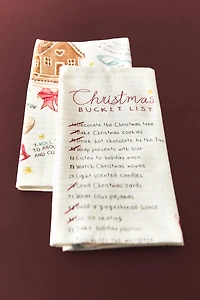 Christmas
BUCKET LIST
Decorate the Christmas tree
Make Christmas cookies
Drink hot chocolate by the fire
Wrap presents with love
Listen to holiday music
Watch Christmas movies
Light scented candles
Send Christmas cards
Wear cozy pajamas
Build a gingerbread house
Go ice skating
Take holiday photos